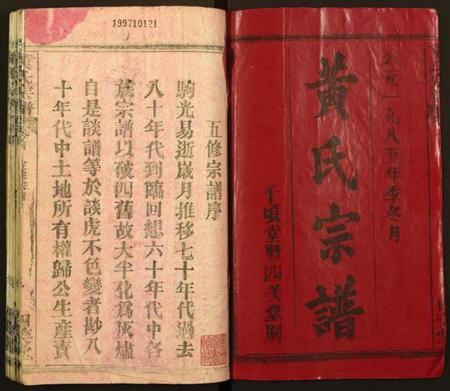 公元一九八五年季冬月
黄氏宗譜
千頃堂暨四美堂刷
199710121
五修宗譜序
駒光易逝歲月推移七十年代過去
八十年代到臨回想六十年代中各
族宗譜以破四舊故大半化為灰燼
自是談譜等於談虎不色變者尠八
十年代中土地所有權歸公生産責